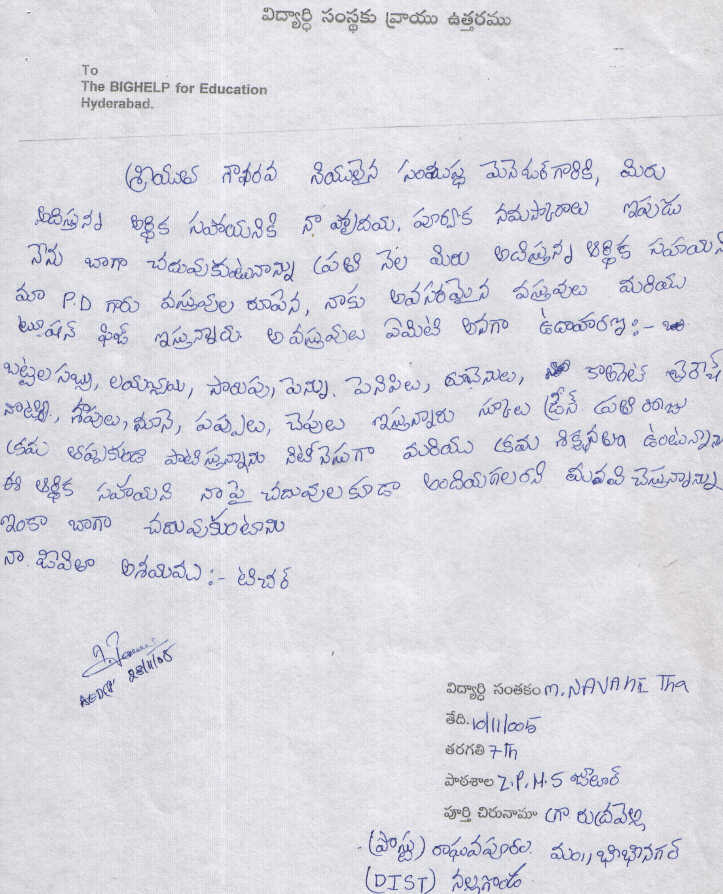 విద్యార్థి సంస్థకు వ్రాయు ఉత్తరము
To
The BIGHELP for Education
Hyderabad.
శ్రీయుత గౌవరవ నియులైన సంయుష్ట మెనేబర్ గారికి, మిరు
అదిస్తున్న ఆర్థిక సహాయనికి నా హృదయ. పూర్వక నమస్కారాలు ఇపుడు
నేను బాగా చదువుకుటునాన్ను ప్రతి నెల మిరు అదిస్తున్న ఆర్థిక సహాయని
మా P.D గారు వస్తువుల రూపేన, నాకు అవసరమైన వస్తువులు మరియు
ట్యూషన్ ఫిజ్ ఇస్తున్నారు. ఆ వస్తువులు ఏమిటి అనగా ఉదాహరణ:-
బట్టల సబ్బు, లయబ్బాయి, సారుపు, పెన్ను, పెనిసిలు, రూబెనులు, కాల్గెట్
నొట్బు, శొపులు, నూనె, పప్పులు, చెపులు ఇస్తున్నారు స్కూలు డ్రేస్ ప్రతి రోజు
క్రమ తప్పకుండా పాటిస్తున్నాను నిటీ వేడుగా మరియు క్రమ శిక్షనలా ఉంటున్నాను
ఈ ఆర్థిక సహయని నా పై చదువుల కూడా అందియగలరని మనవి చెస్తున్నాన్ను
ఇంకా బాగా చదువుకుంటాను
నా జివితా అశయమి :- టిచర్
23/11/05
విద్యార్థి సంతకం M. NAVANE Tha
తేది. 10/11/005
తరగతి 7 Th
పాఠశాల Z.P.H.S జులూర్
పూర్తి చిరునామా గ్రా రుద్రవెల్లి
(పొస్టు) రాఘవపురం. మం,, భిభినగర్
(DIST) నల్లగొండ